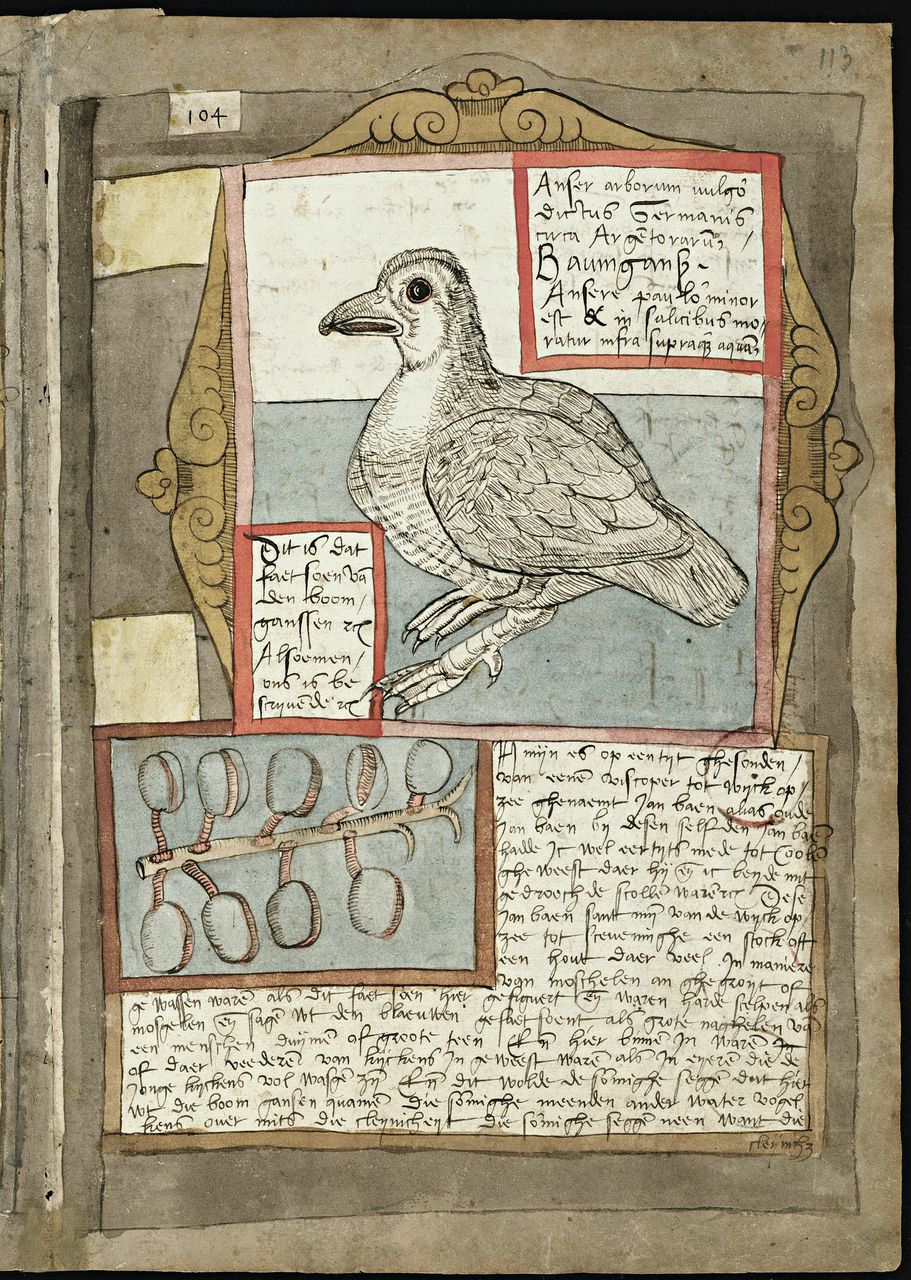 113
104
Anser arborum vulgo
dictus Germanis
circa Argētorarum
Baumganß.
Ansere paulo minor
est & in salicibus mo/
ratur infra supraq̨ aquā
Dit is dat
faetsoen vā
den boom/
ganssen ꝛc
Alsoemen/
ons is be
scrivēde ꝛc
mijn es op een tijt ghesonden/
van eenē viscoper tot wijck op/
zee ghenaemt Jan baen alias oude
Jan baen bij desen selfden Jan baē
hadde ic wel eertijts mede tot Coolē
gheweest daer hij eñ ic beijde mit
gedroechde scollē warē ꝛc Dese
Jan baen sant mij van de wijck op/
zee tot sceveninghe een stock oft
een hout daer veel In maniere
van moschelen an ghegroijt of
gewassen warē als dit faetsoen hier gefiguert eñ waren harde scelpen als
mosgelen eñ sagē wt den blaeuwen gefaetsoent als grote naghelen vā
een menschen duijmen of groote teen Eñ hier binnē In warē
of daer veederē van kijckens In geweest warē als In eijerē die de
Jonge kijckens vol wassē zijn Eñ dit wolde de sōmighe seggē dat hier
wt die boom gansen quamē die sōmighe meenden ander water vogel
kens over mits die cleijnicheijt die sōmighe seggē neen want die
cleijnich